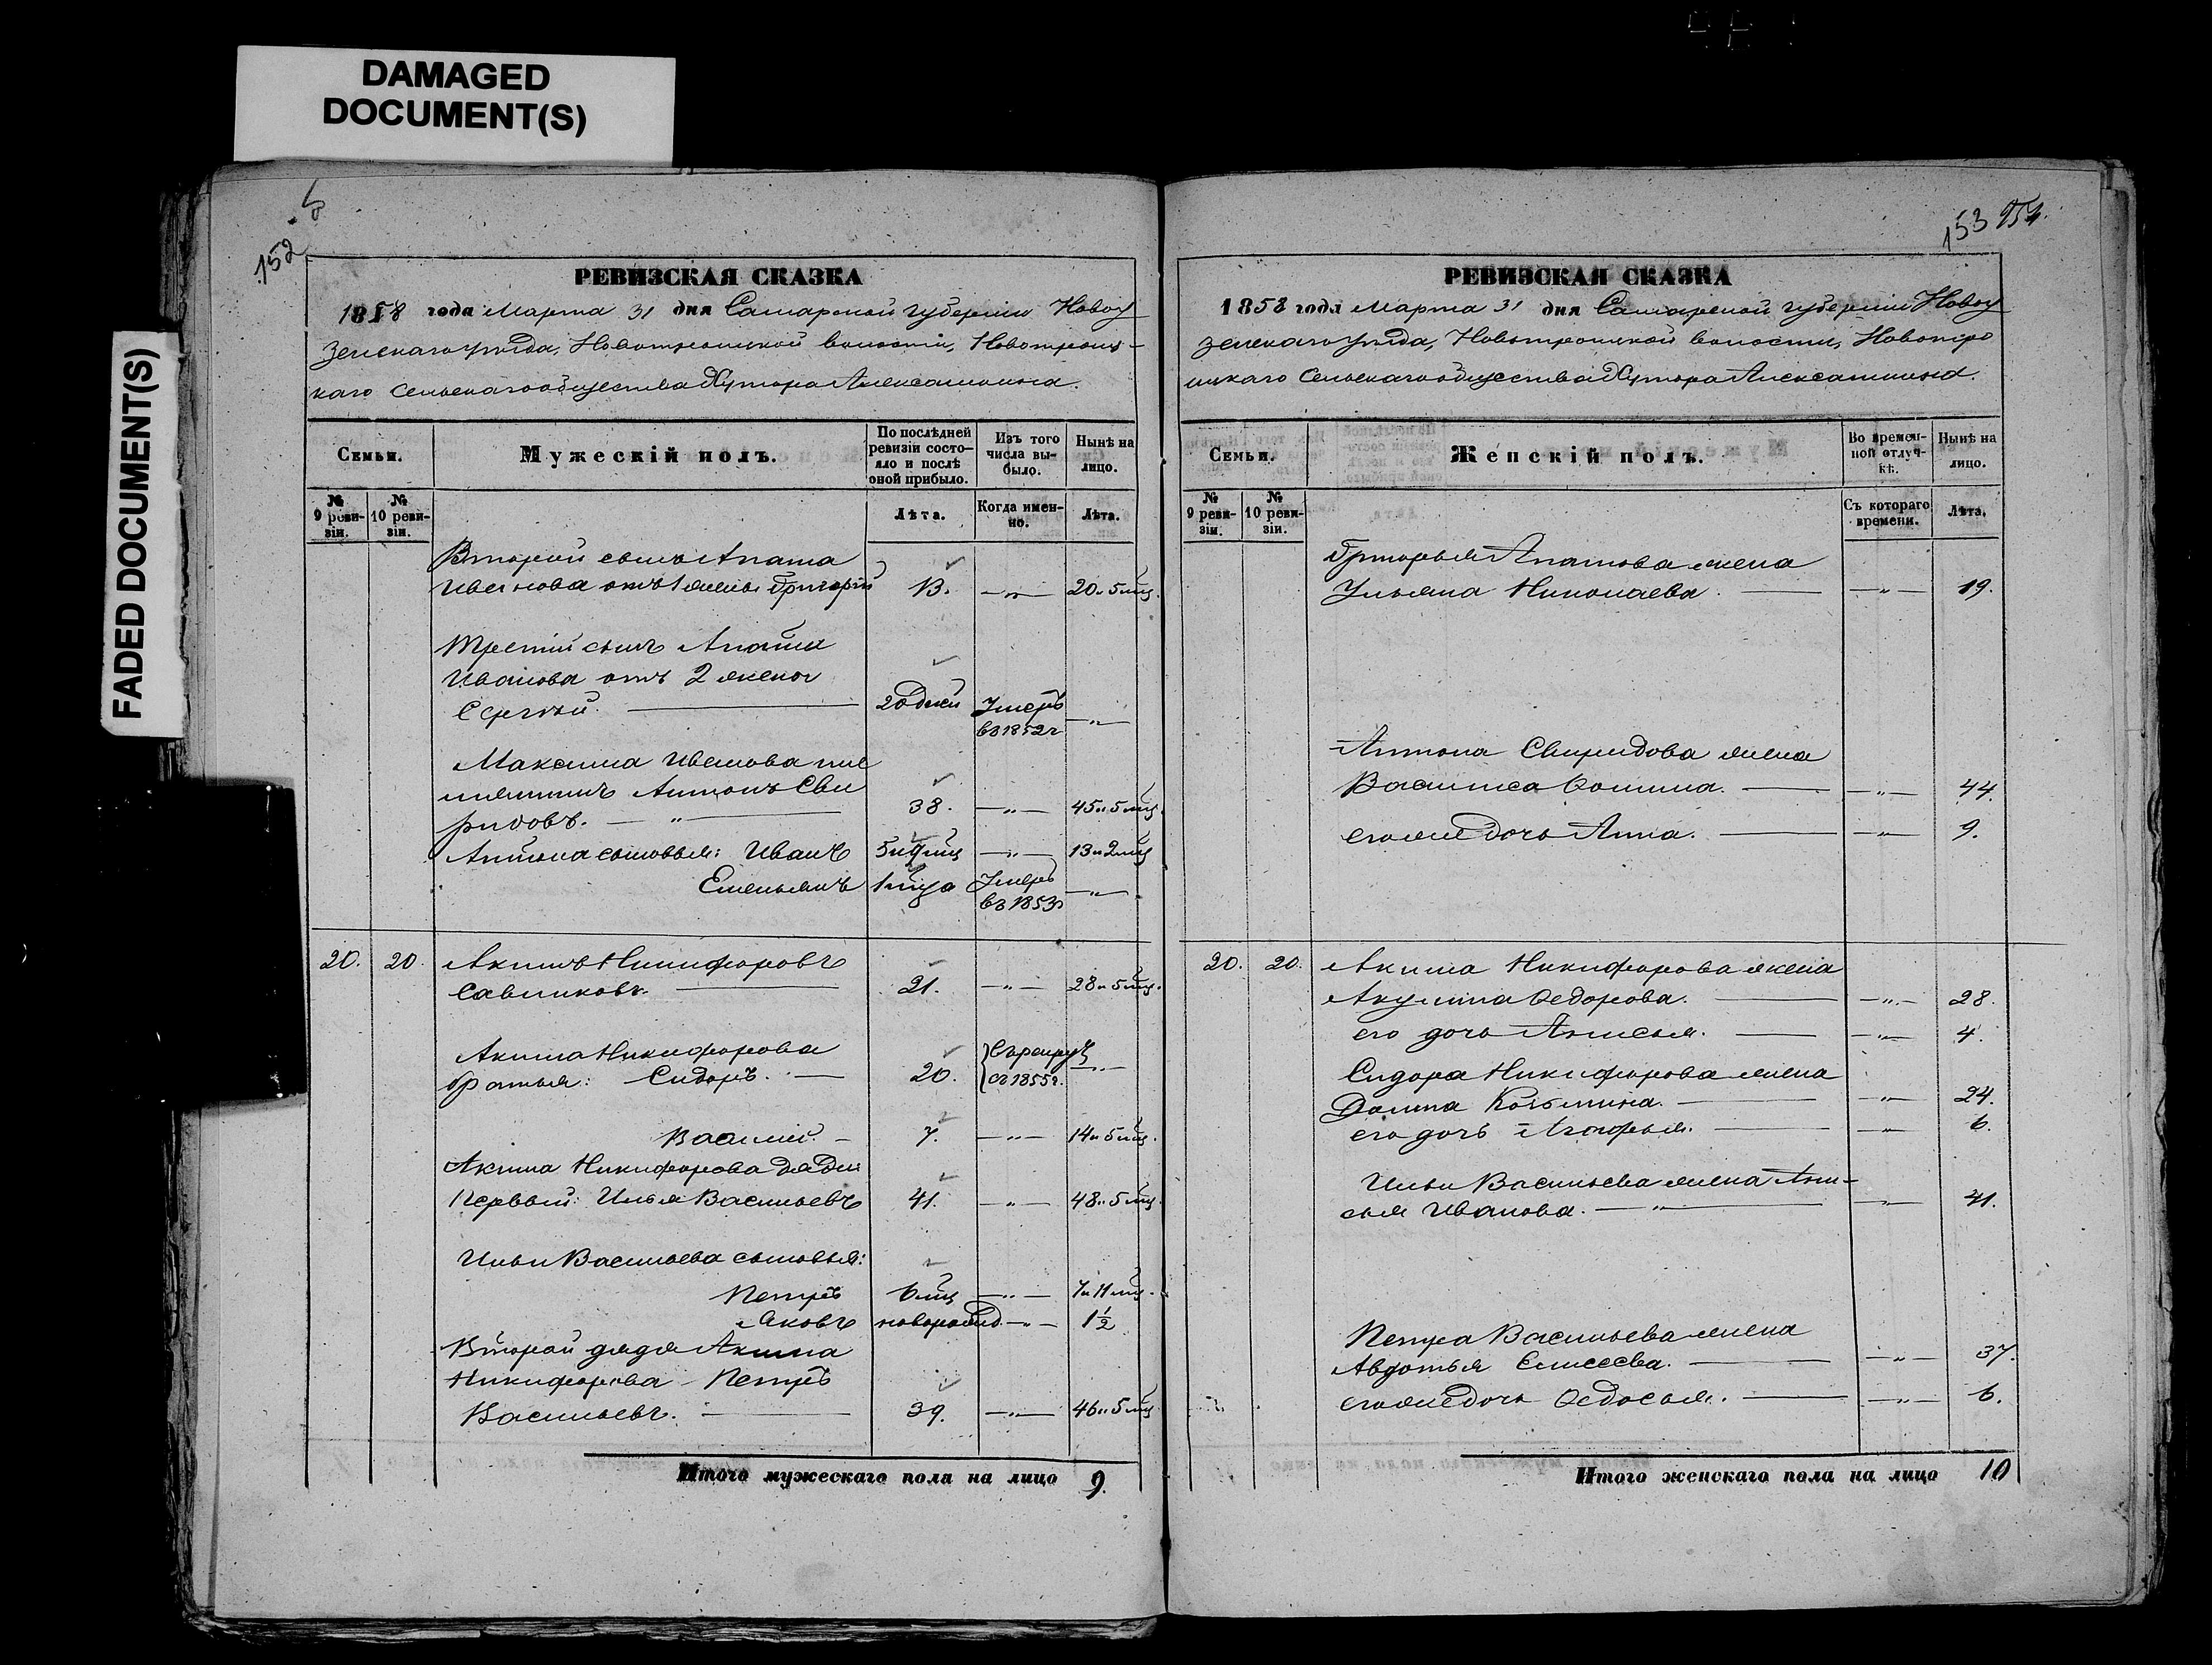 DAMAGED
DOCUMENT(S)
FADED DOCUMENT(S)
152
РЕВИЗСКАЯ СКАЗКА
1858 года Марта 31 дня Самарской губернии Новоу
зенскаго уѣзда, Новотроицкой волости, Новотроиц-
каго сельскаго общества Хутора Алексашкина.
Семьи.
Мужескій полъ.
По послѣдней
ревизіи состо-
яло и послѣ
оной прибыло.
Изъ того
числа вы-
было.
Нынѣ на
лицо.
№
9 реви-
зіи.
№
10 реви-
зіи.
Лѣта.
Когда имен-
но.
Лѣта.
Второй сынъ Ипата
Иванова отъ 1 жены Григорій 13. —„— 20 и 5 мц.
Третій сынъ Ипата
Иванова отъ 2 жены
Сергѣй. 20 дней Умеръ
въ 1852 г —„—
Максима Иванова пле
мянникъ Антонъ Сви
ридовъ. —„— 38. —„— 45 и 5 мц.
Антона сыновья: Иванъ 5 и 9 мц —„— 13 и 2 мц
Емельянъ 1 мца Умеръ
въ 1853 —„—
20. 20. Акимъ Никифоровъ
Савинковъ. 21. —„— 28 и 5 мц.
Акима Никифорова
братья: Сидоръ. 20. въ рекрутѣ
съ 1855 г. —„—
Василій. 7. —„— 14 и 5 мц.
Акима Никифорова дяди
первый: Илья Васильевъ 41. —„— 48 и 5 мц.
Ильи Васильева сыновья:
Петръ 6 мц —„— 7 и 11 мц.
Яковъ новорожд. —„— 1½
Второй дядя Акима
Никифорова – Петръ
Васильевъ. 39. —„— 46 и 5 мц
Итого мужескаго пола на лицо 9.
153 154.
РЕВИЗСКАЯ СКАЗКА
1858 года Марта 31 дня Самарской губернии Новоу
зенскаго уѣзда, Новотроицкой волости, Новотро
ицкаго сельскаго общества Хутора Алексашкина.
Семьи.
Женскій полъ.
Во времен-
ной отлуч-
кѣ.
Нынѣ на
лицо.
№
9 реви-
зіи.
№
10 реви-
зіи.
Съ котораго
времени.
Лѣта.
Григорья Ипатова жена
Ульяна Николаева. —„— 19.
Антона Свиридова жена
Василиса Фомина. —„— 44.
его же дочь Анна. —„— 9.
20. 20. Акима Никифорова жена
Акулина Федорова. —„— 28.
его дочь Анисья. —„— 4.
Сидора Никифорова жена
Домна Козьмина. —„— 24.
его дочь Агафья. —„— 6.
Ильи Васильева жена Ани-
сья Иванова. —„— —„— 41.
Петра Васильева жена
Авдотья Елисеева. —„— 37.
его же дочь Федосья. —„— 6.
Итого женскаго пола на лицо 10